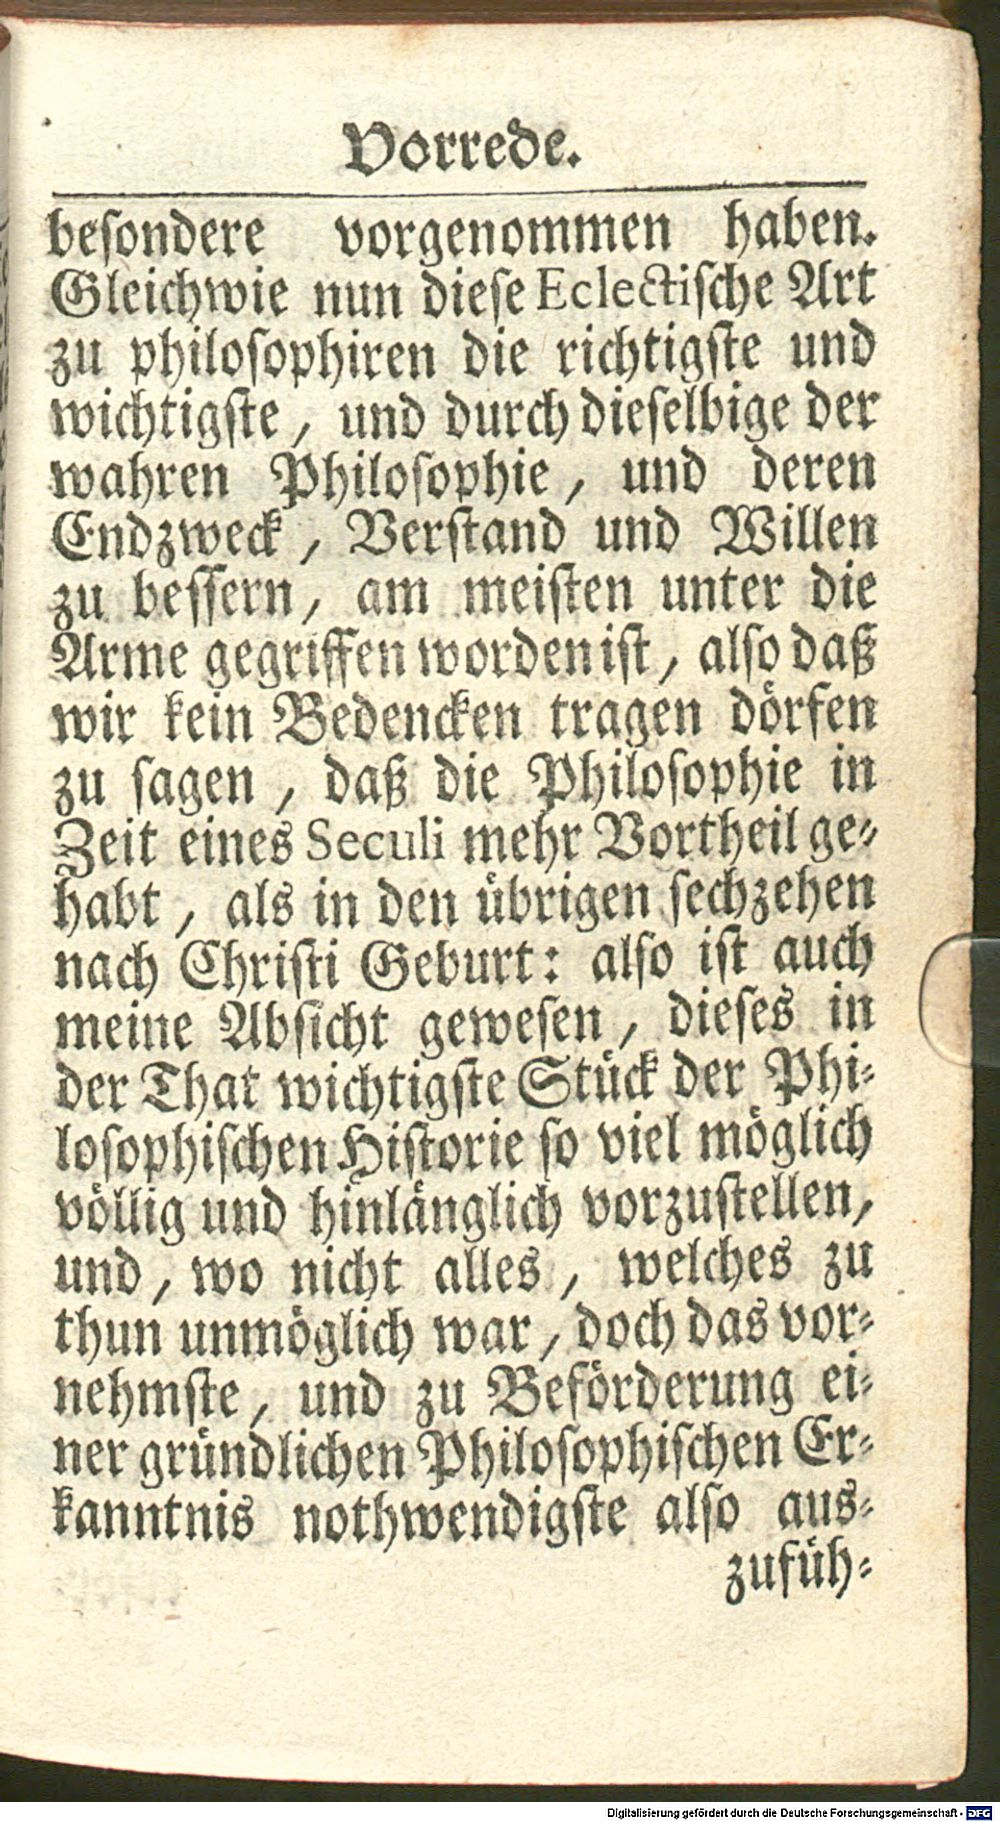 Vorrede.
besondere vorgenommen haben.
Gleichwie nun diese Eclectische Art
zu philosophiren die richtigste und
wichtigste, und durch dieselbige der
wahren Philosophie, und deren
Endzweck, Verstand und Willen
zu bessern, am meisten unter die
Arme gegriffen worden ist, also daß
wir kein Bedencken tragen dörfen
zu sagen, daß die Philosophie in
Zeit eines Seculi mehr Vortheil ge-
habt, als in den übrigen sechzehen
nach Christi Geburt: also ist auch
meine Absicht gewesen, dieses in
der That wichtigste Stück der Phi-
losophischen Historie so viel möglich
völlig und hinlänglich vorzustellen,
und, wo nicht alles, welches zu
thun unmöglich war, doch das vor-
nehmste, und zu Beförderung ei-
ner gründlichen Philosophischen Er-
kanntnis nothwendigste also aus-
zufüh-
Digitalisierung gefördert durch die Deutsche Forschungsgemeinschaft - DFG